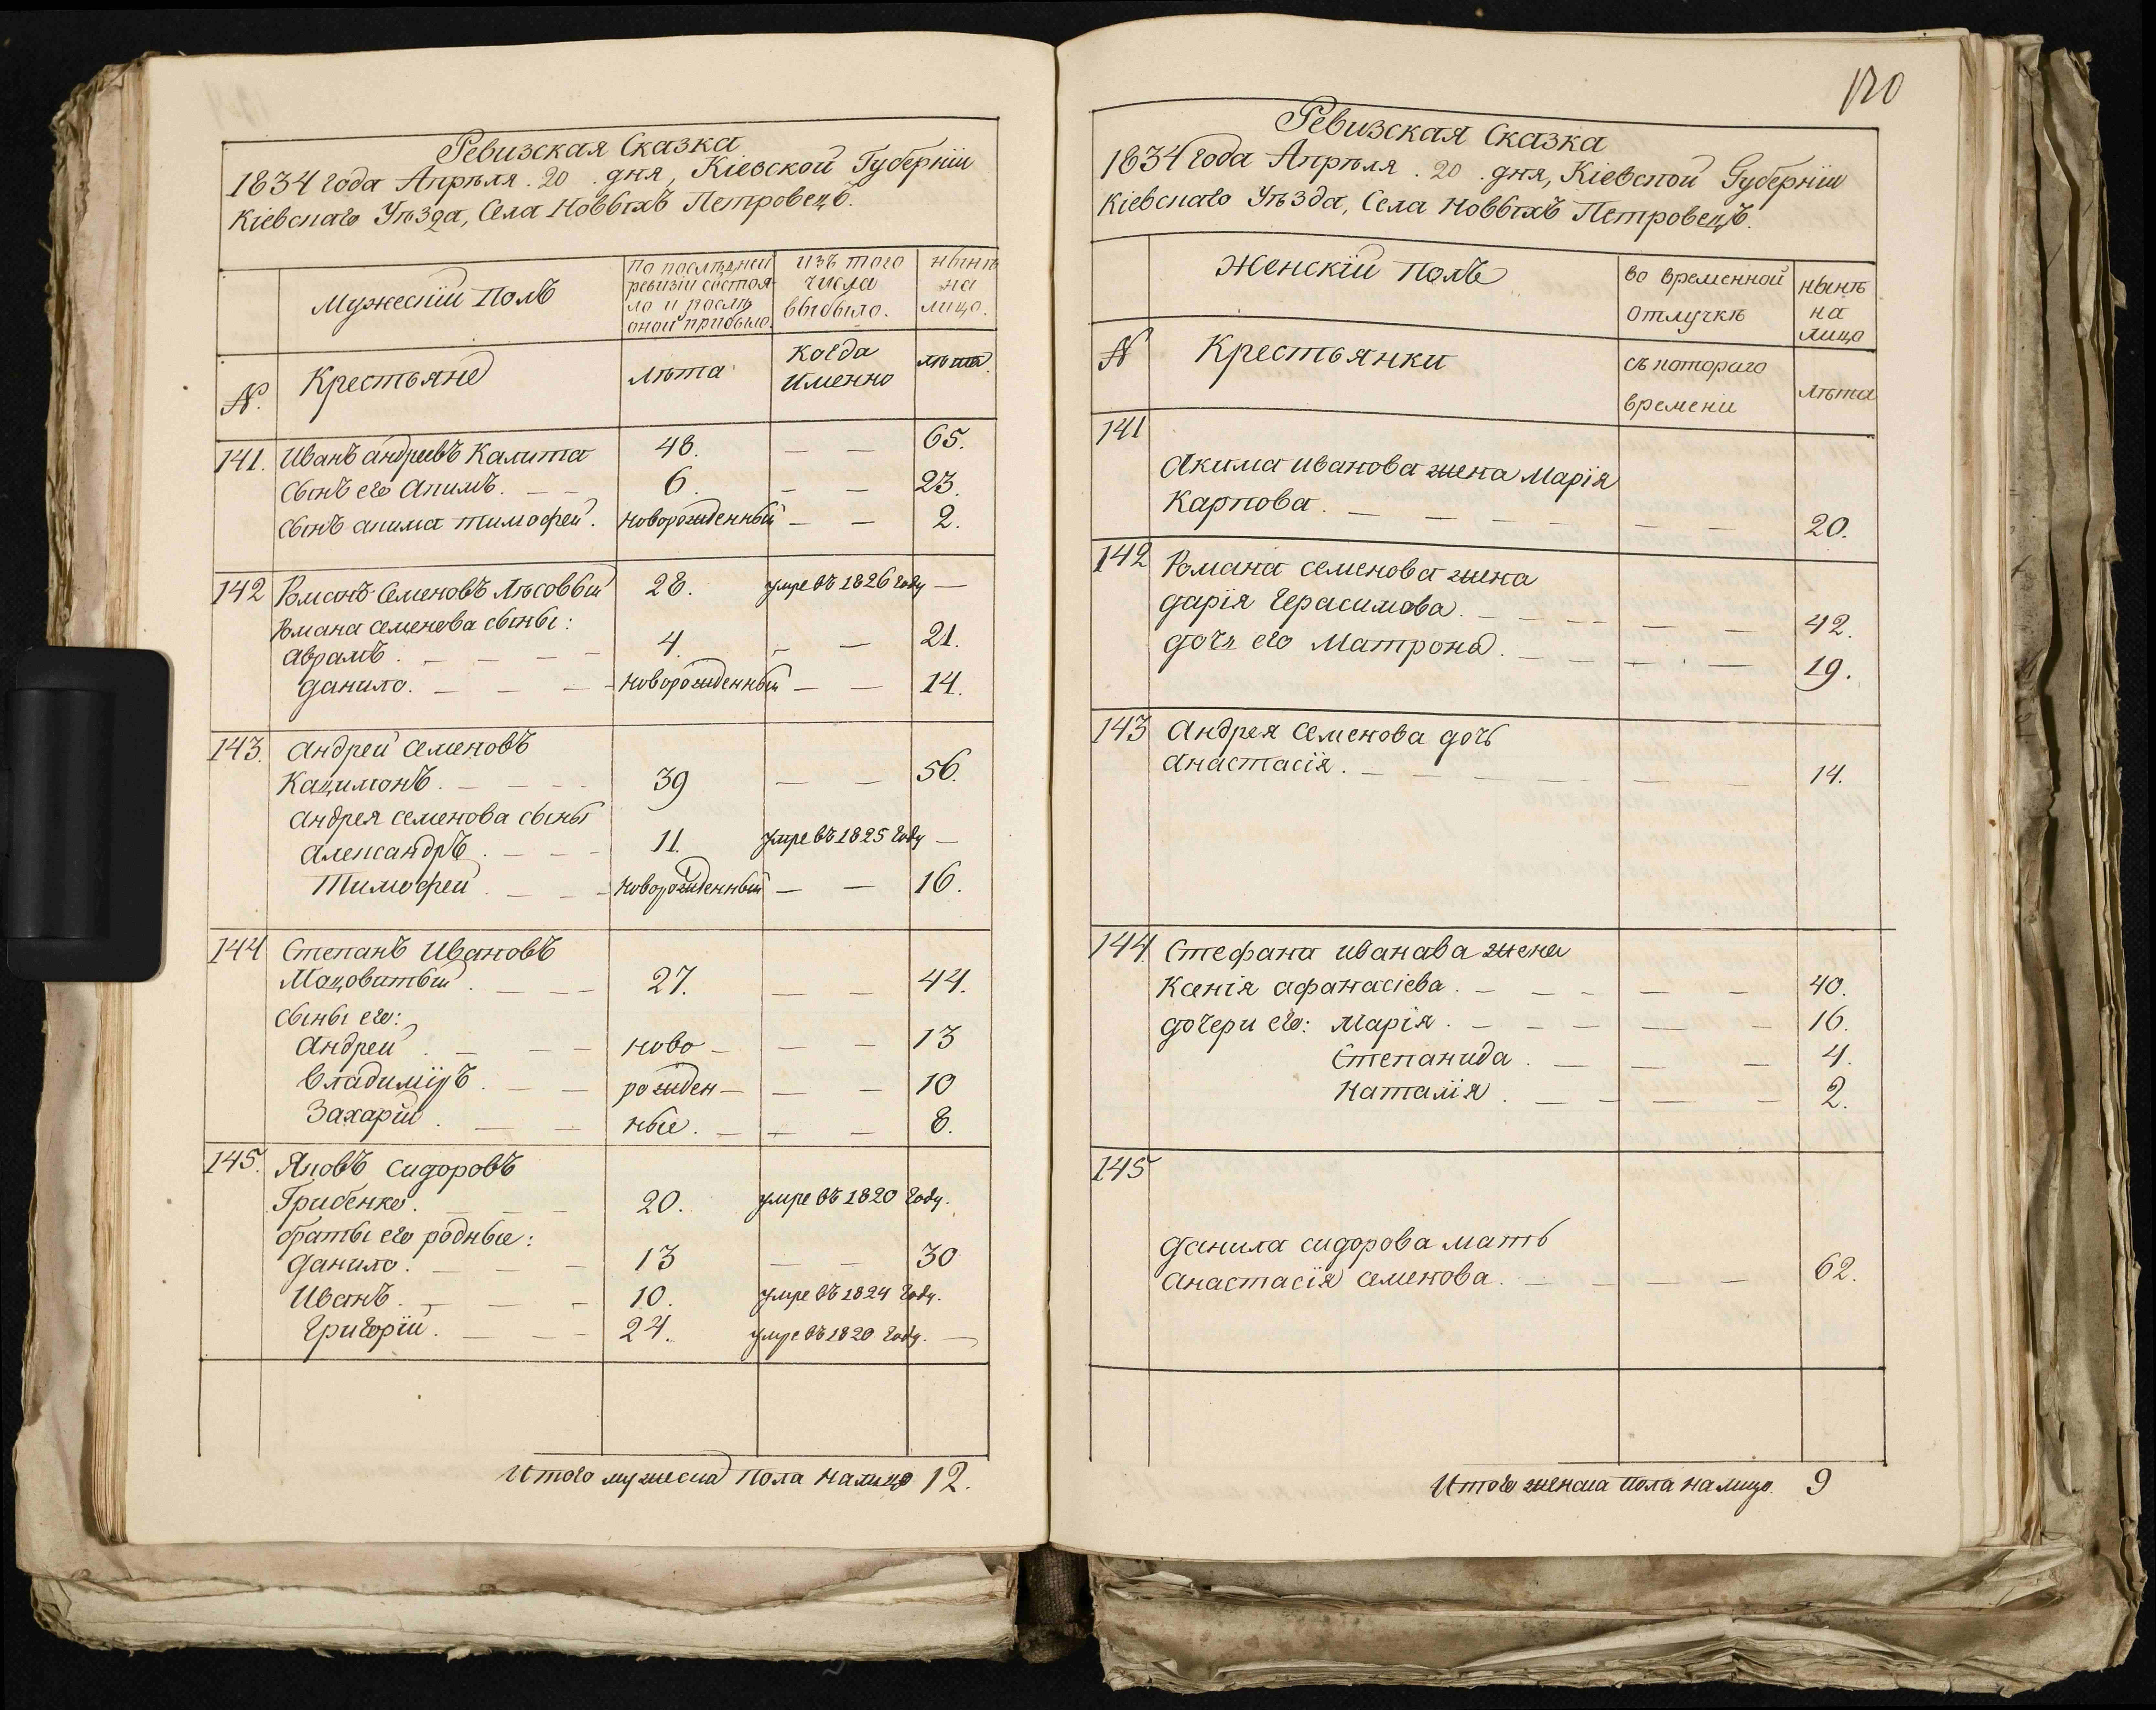 Ревизская Сказка
1834 года Апрѣля . 20 . дня, Кіевской Губерніи
Кіевскаго Уѣзда, Села Новыхъ Петровецъ.
Мужескій Полъ
по послѣдней
ревизіи состоя-
ло и послѣ
оной прибыло.
изъ того
числа
выбыло.
нынѣ
на
лицо.
№.
Крестьяне
лѣта
когда
именно
лѣта.
141. Иванъ андреевъ Калита 48. — — 65.
Сынъ его Акимъ. — — 6. — — 23.
Сынъ акима тимофей. новорожденный — — 2.
142 Романъ Семеновъ Лѣсовый 28. умре въ 1826 году —
Романа семенова сыны:
аврамъ. — — — — 4. — — 21.
данило. — — — новорожденный — — 14.
143. андрей семеновъ
Кацимонъ. — — — — 39 — — 56.
андрея семенова сыны
александръ. — — — 11. умре въ 1825 году —
Тимофей. — — — новорожденный — — 16.
144 Степанъ Ивановъ
Мацовитый. — — — 27. — — 44.
сыны его:
андрей. — — — ново — — — 13
владиміръ. — — рожден — — — 10
Захарій. — — ные. — — — 8.
145. Яковъ сидоровъ
Грибенко. — — — 20. умре въ 1820 году.
браты его родные:
данило. — — — 13 — — 30
Иванъ. — — — 10. умре въ 1824 году.
григорій. — — — 24. умре въ 1820 году. —
Итого мужеска пола налицо 12.
120
Ревизская Сказка
1834 года Апрѣля . 20 . дня, Кіевской Губерніи
Кіевскаго Уѣзда, Села Новыхъ Петровецъ.
Женскій полъ
во временной
отлучкѣ
нынѣ
на
лицо
№
Крестьянки
съ котораго
времени
лѣта
141
Акима иванова жена Марія
Карпова. — — — — — — — 20.
142 Романа семенова жена
дарія герасимова. — — — — — — 42.
дочь его Матрона. — — — — — 19.
143 Андрея Семенова дочь
анастасія. — — — — — — — 14.
144. Стефана иванава жена
Ксенія афанасіева. — — — — — 40.
дочери его: Марія. — — — — — 16.
Степанида. — — — 4.
наталія. — — — — 2.
145
данила сидорова мать
анастасія семенова. — — — — 62.
Итого женска пола налицо. 9